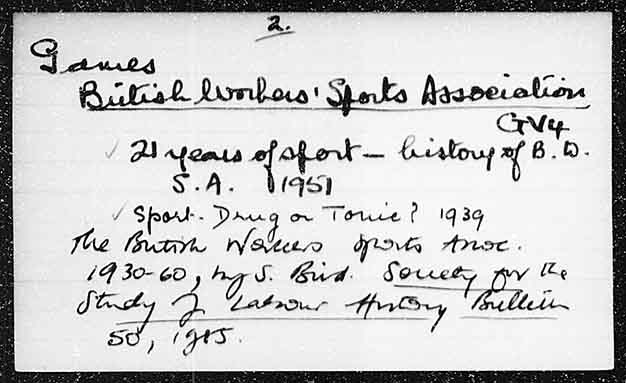 2.
Games
British Workers' Sports Association
GV4
✓ 21 years of sport – history of B.W.
S.A. 1951
✓ Sport - Drug or Tonic? 1939
The British Workers Sports Assoc.
1930-60, by S. Bird. Society for the
Study of Labour History Bulletin
50, 1985.